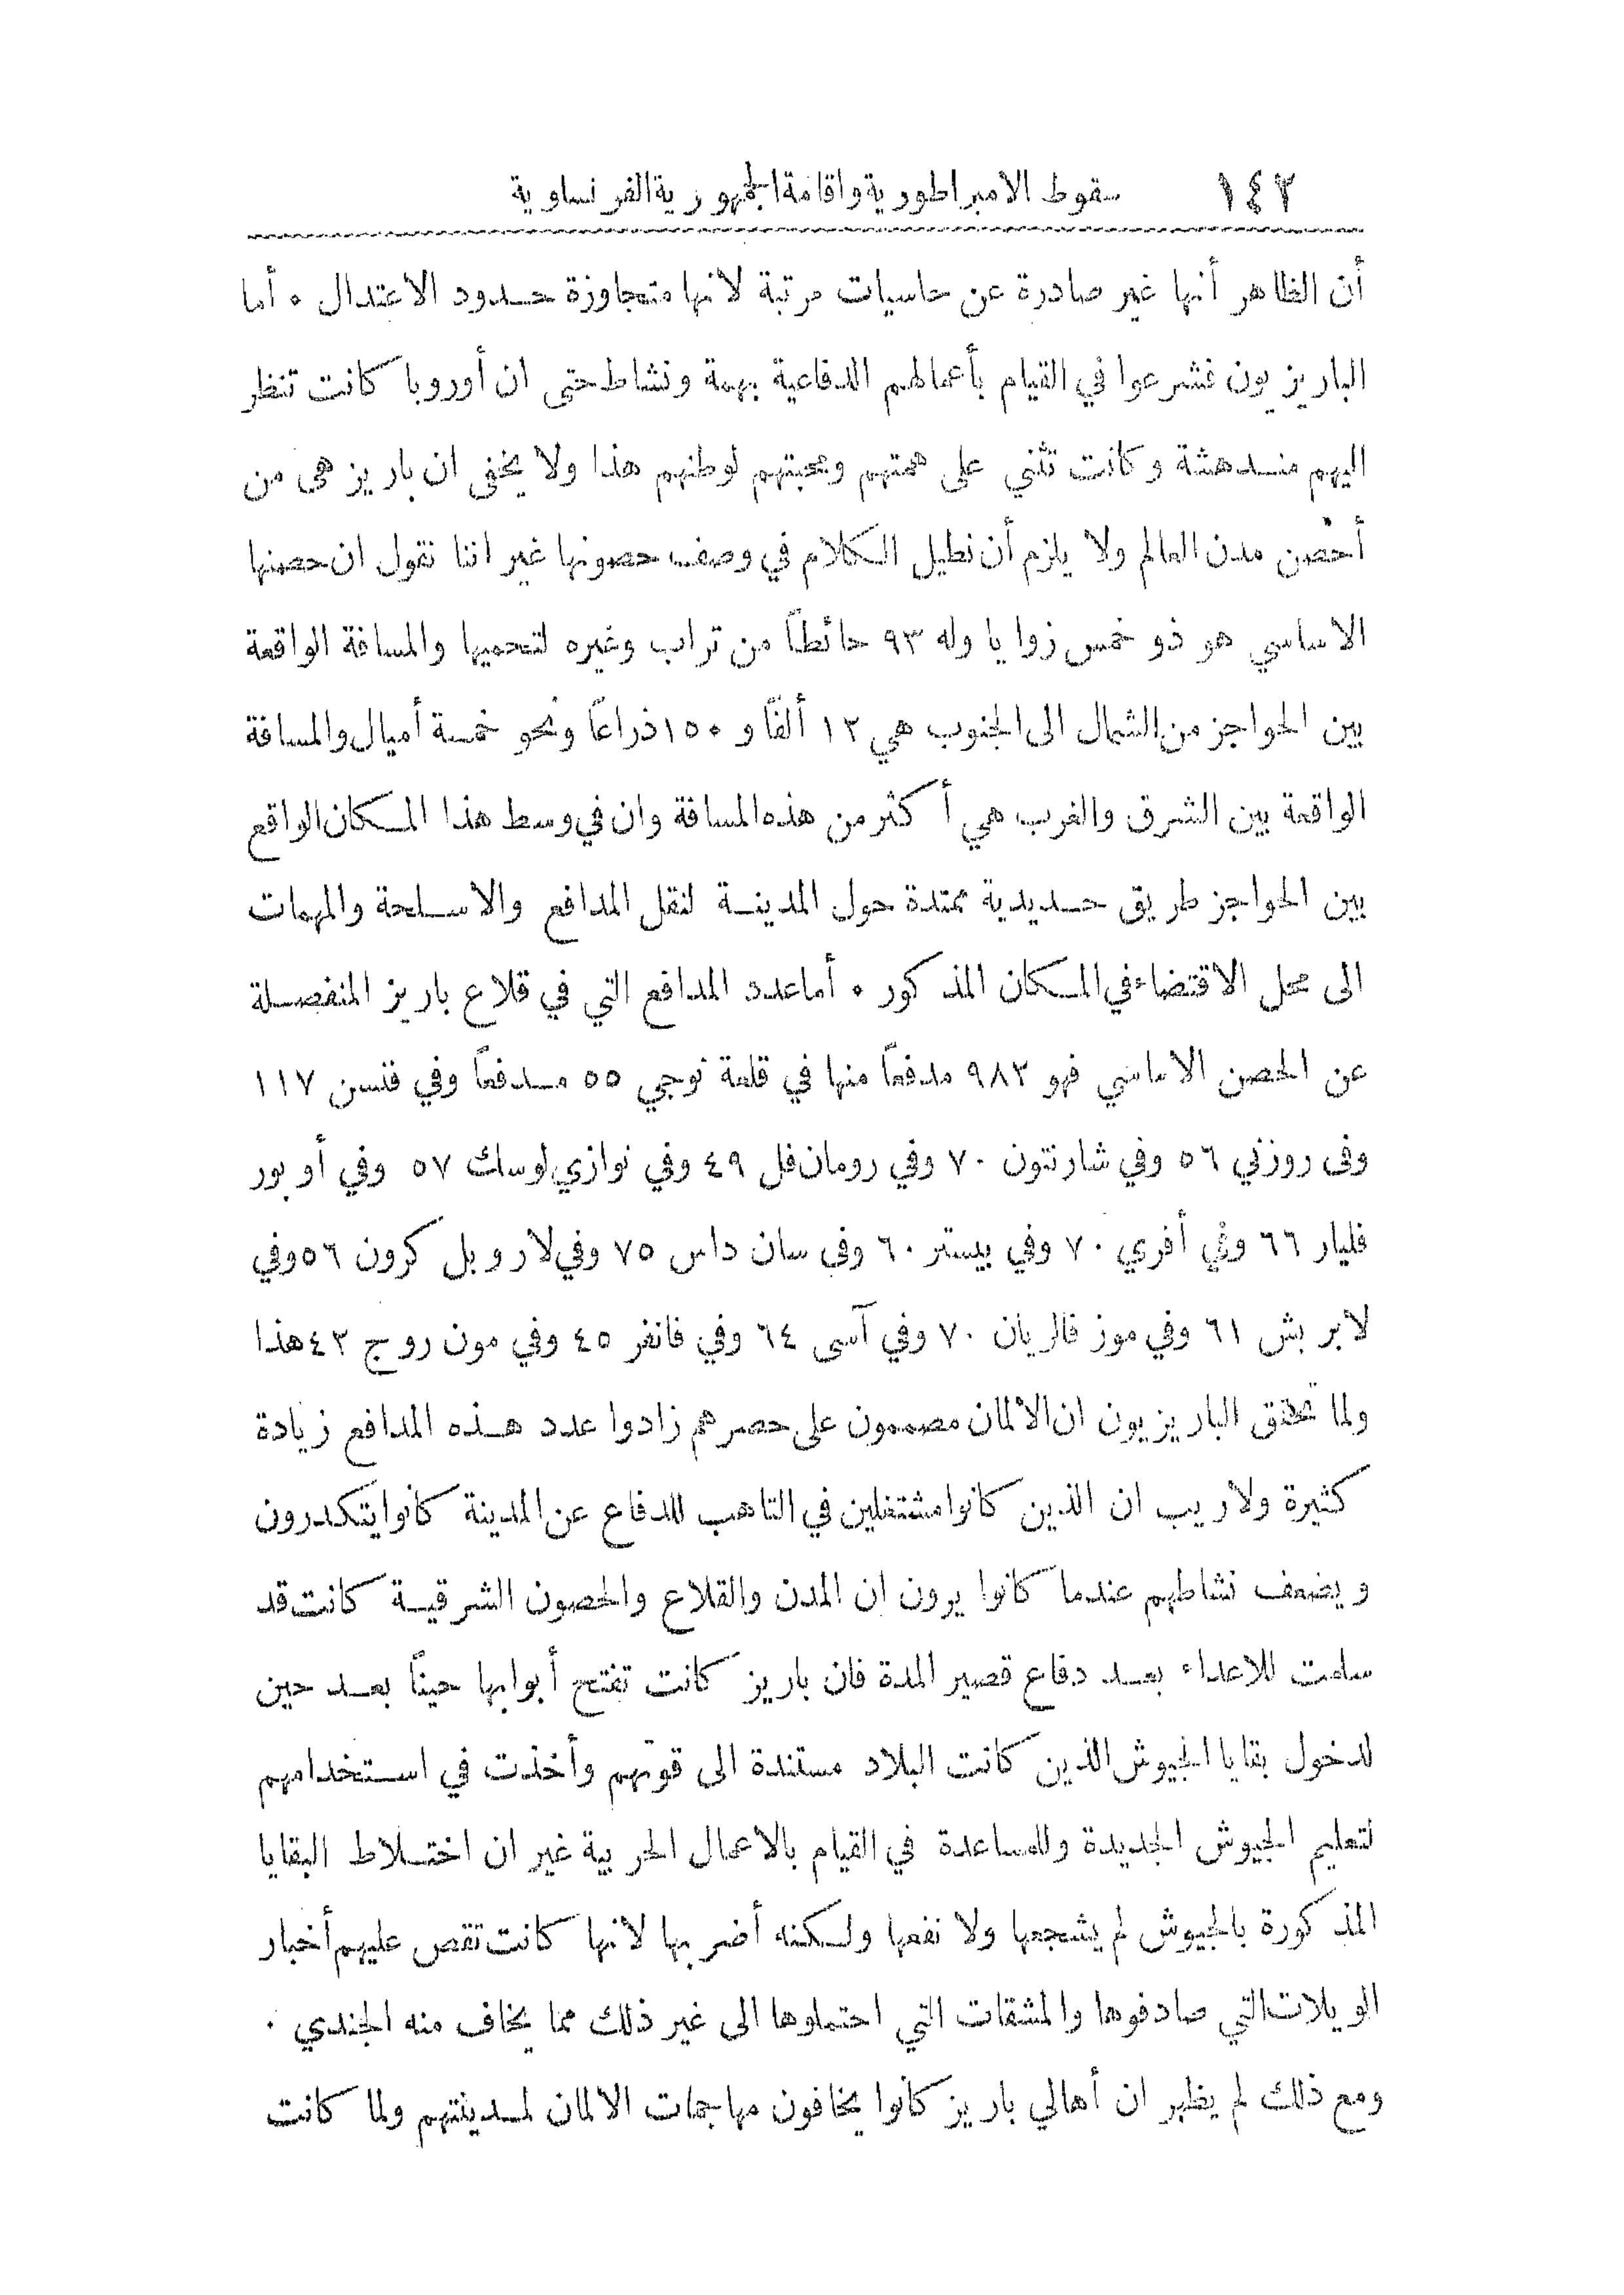 ١٤٢ سقوط الامبراطورية واقامة الجمهورية الفرنساوية
أن الظاهر أنها غير صادرة عن حاسيات مرتبة لانها متجاوزة حدود الاعتدال . أما
الباريزيون فشرعوا في القيام بأعمالهم الدفاعية بهمة ونشاط حتى ان أوروبا كانت تنظر
اليهم مندهشة وكانت تثني على همتهم ومحبتهم لوطنهم هذا ولا يخفى ان باريز هى من
أحصن مدن العالم ولا يلزم أن نطيل الكلام في وصف حصونها غير اننا نقول ان حصنها
الاساسي هو ذو خمس زوايا وله ٩٣ حائطاً من تراب وغيره لتحميها والمسافة الواقعة
بين الحواجز من الشمال الى الجنوب هي ١٢ ألفاً و ١٥٠ ذراعاً ونحو خمسة أميال والمسافة
الواقعة بين الشرق والغرب هي أكثر من هذه المسافة وان في وسط هذا المكان الواقع
بين الحواجز طريق حديدية ممتدة حول المدينة لنقل المدافع والاسلحة والمهمات
الى محل الاقتضاء في المكان المذكور . أما عدد المدافع التي في قلاع باريز المنفصلة
عن الحصن الاساسي فهو ٩٨٢ مدفعاً منها في قلعة نوجي ٥٥ مدفعاً وفي فنسن ١١٧
وفى روزني ٥٦ وفي شارنتون ٧٠ وفي رومان فل ٤٩ وفي نوازي لوسك ٥٧ وفي أوبور
فليار ٦٦ وفي أفري ٧٠ وفي بيستر ٦٠ وفى سان داس ٧٥ وفي لاروبل كرون ٥٦ وفي
لابربش ٦١ وفي موز فالريان ٧٠ وفي آسى ٦٤ وفي فانفر ٤٥ وفي مون روج ٤٣ هذا
ولما تحقق الباريزيون ان الالمان مصممون على حصرهم زادوا عدد هذه المدافع زيادة
كثيرة ولاريب ان الذين كانوا مشتغلين في التاهب للدفاع عن المدينة كانوا يتكدرون
ويضعف نشاطهم عندما كانوا يرون ان المدن والقلاع والحصون الشرقية كانت قد
سلمت للاعداء بعد دفاع قصير المدة فان باريز كانت تفتح أبوابها حيناً بعد حين
لدخول بقايا الجيوش الذين كانت البلاد مستندة الى قوتهم وأخذت في استخدامهم
لتعليم الجيوش الجديدة وللمساعدة في القيام بالاعمال الحربية غير ان اختلاط البقايا
المذكورة بالجيوش لم يشجعها ولا نفعها ولكنه أضر بها لانها كانت تقص عليهم أخبار
الويلات التي صادفوها والمشقات التي احتملوها الى غير ذلك مما يخاف منه الجندي .
ومع ذلك لم يظهر ان أهالي باريز كانوا يخافون مهاجمات الالمان لمدينتهم ولما كانت